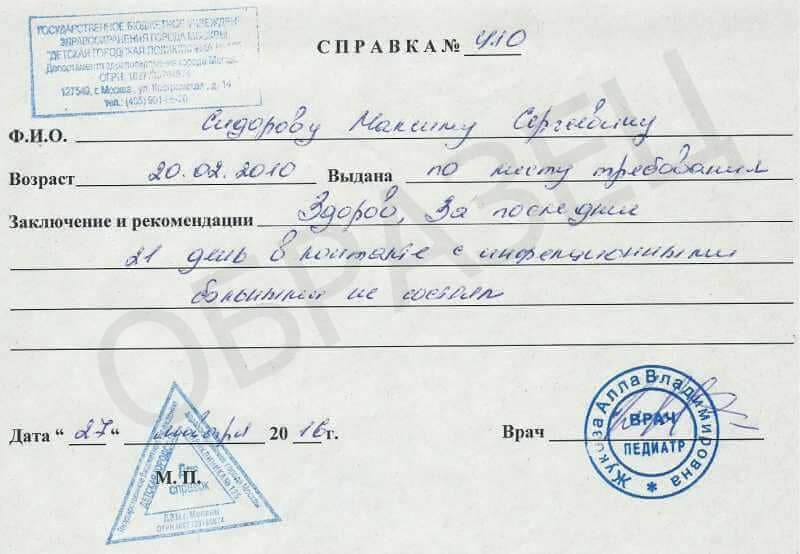 ГОСУДАРСТВЕННОЕ БЮДЖЕТНОЕ УЧРЕЖДЕНИЕ
ЗДРАВООХРАНЕНИЯ ГОРОДА МОСКВЫ
"ДЕТСКАЯ ГОРОДСКАЯ ПОЛИКЛИНИКА
Департамента здравоохранения города Москвы
ОГРН
127549, г. Москва, ул. Костромская, д. 14
тел.: (495)
СПРАВКА № 410
Ф.И.О. Сидорову Максиму Сергеевичу
Возраст 20.02.2010 Выдана по месту требования
Заключение и рекомендации Здоров, За последние
21 день в контакте с инфекционными
больными не состоял
ОБРАЗЕЦ
Дата "27" января 2016г.
Врач
М. П.
Для справок
Жукова Алла Владимировна
ВРАЧ
ПЕДИАТР